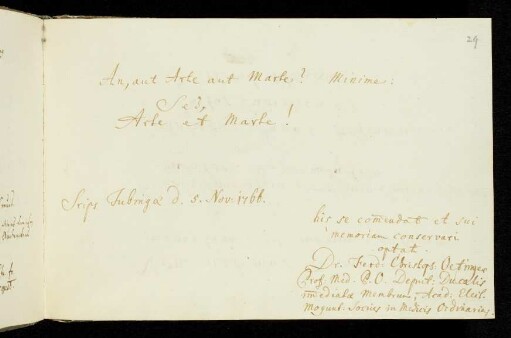 29
An, aut Arte aut Marte? Minime:
Sed,
Arte et Marte!
Scrips Tubingæ d. 5. Nov. 1766.
his se com̄endat et sui
memoriam conservari
optat.
Dr. Ferd. Christoph. Oetinger
Prof. Med. P. O. Deput. Ducalis
im̄ediatæ Membrum, Acad. Elect.
Mogunt. Socius